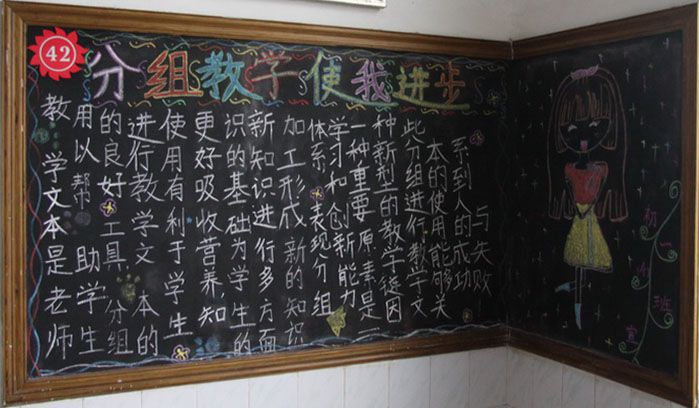 42
分组教学使我进步
教学文本是老师
用以帮助学生
的良好工具分组
进行教学文本的
使用有利于学生
更好吸收营养知
识的基础为学生的
新知识进行多方面
加工形成新的知识
体系表现分组
学习和创新能力
一种重要原素是一
种新型的教学途因
此分组进行教学文
本的使用能够关
系到人的成功
与失败
初一班宣